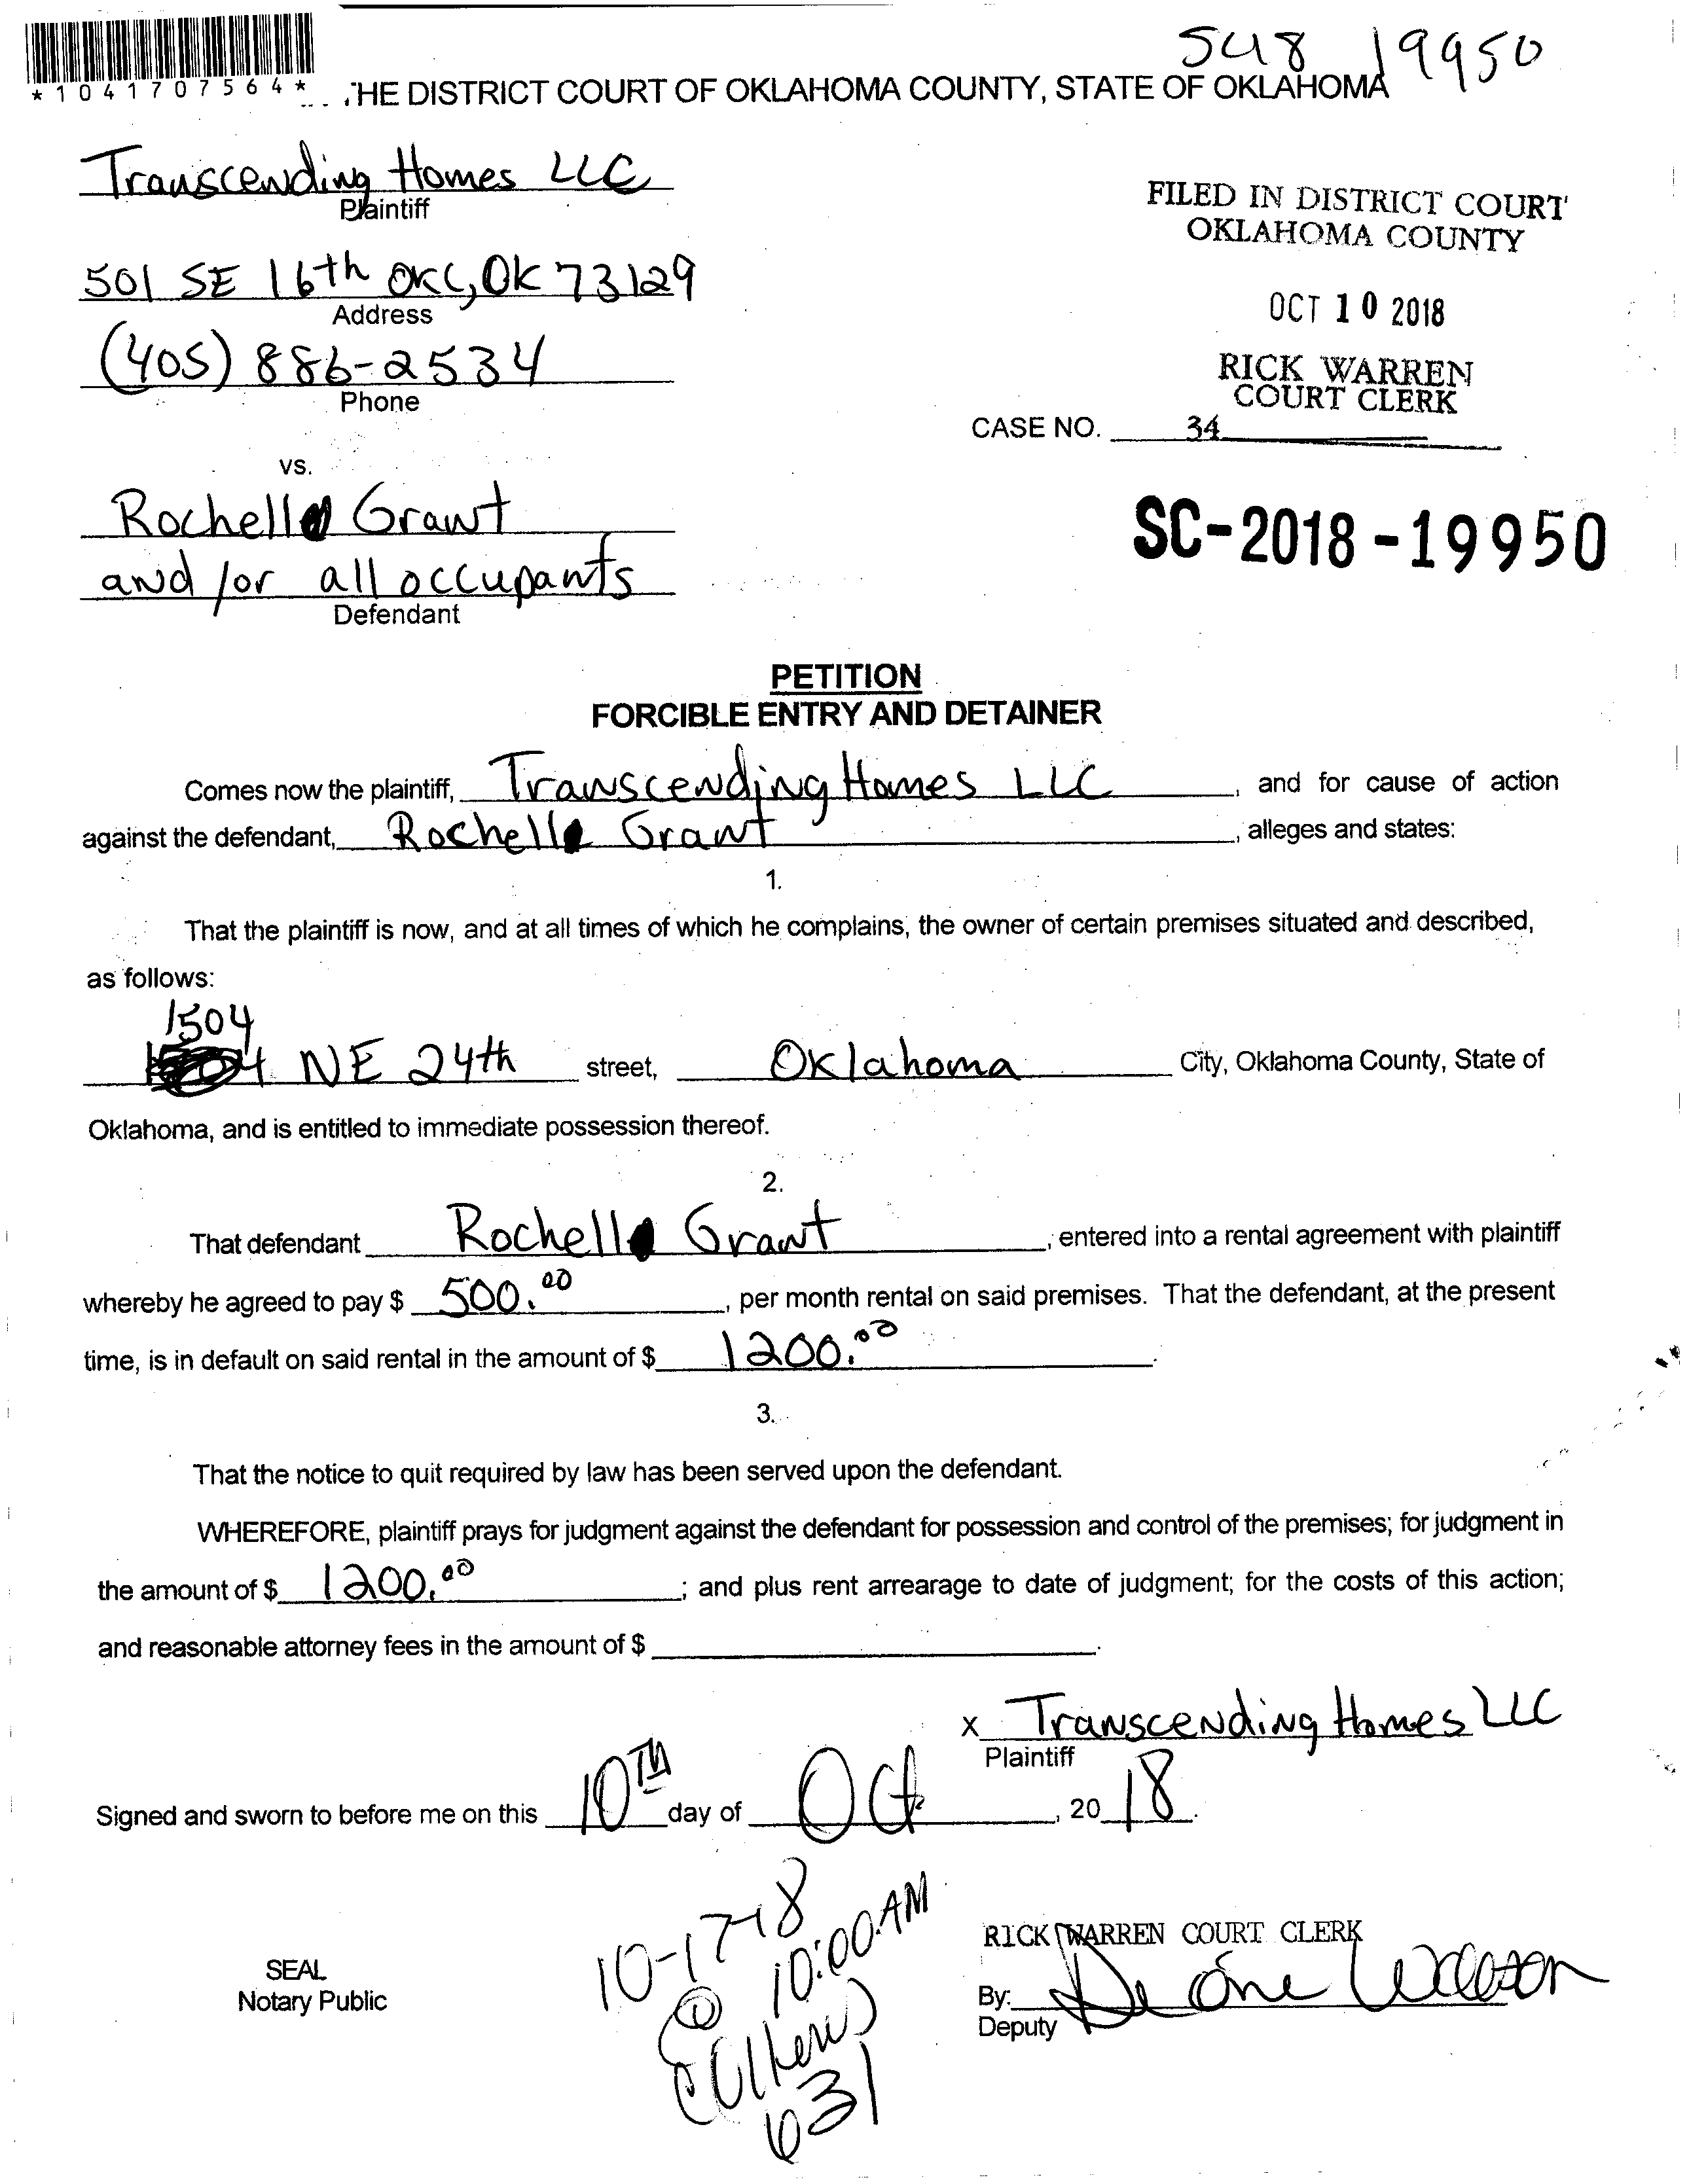 *1041707564*
SC18 19950
THE DISTRICT COURT OF OKLAHOMA COUNTY, STATE OF OKLAHOMA
Transcending Homes LLC
Plaintiff
501 SE 16th OKC, OK 73129
Address
(405) 886-2534
Phone
FILED IN DISTRICT COURT
OKLAHOMA COUNTY
OCT 10 2018
RICK WARREN
COURT CLERK
CASE NO. 34
vs.
SC-2018-19950
Rochelle Grant
and/or all occupants
Defendant
PETITION
FORCIBLE ENTRY AND DETAINER
Comes now the plaintiff, Transcending Homes LLC, and for cause of action
against the defendant, Rochelle Grant, alleges and states:
1.
That the plaintiff is now, and at all times of which he complains, the owner of certain premises situated and described,
as follows:
1504
NE 24th street, Oklahoma City, Oklahoma County, State of
Oklahoma, and is entitled to immediate possession thereof.
2.
That defendant Rochelle Grant, entered into a rental agreement with plaintiff
whereby he agreed to pay $ 500.00, per month rental on said premises. That the defendant, at the present
time, is in default on said rental in the amount of $ 1200.00.
3.
That the notice to quit required by law has been served upon the defendant.
WHEREFORE, plaintiff prays for judgment against the defendant for possession and control of the premises; for judgment in
the amount of $ 1200.00; and plus rent arrearage to date of judgment; for the costs of this action;
and reasonable attorney fees in the amount of $ .
X Transcending Homes LLC
Plaintiff
Signed and sworn to before me on this 10TH day of Oct, 2018.
10-17-18
@ 10:00 AM
631
SEAL
Notary Public
RICK WARREN COURT CLERK
By:
Deputy